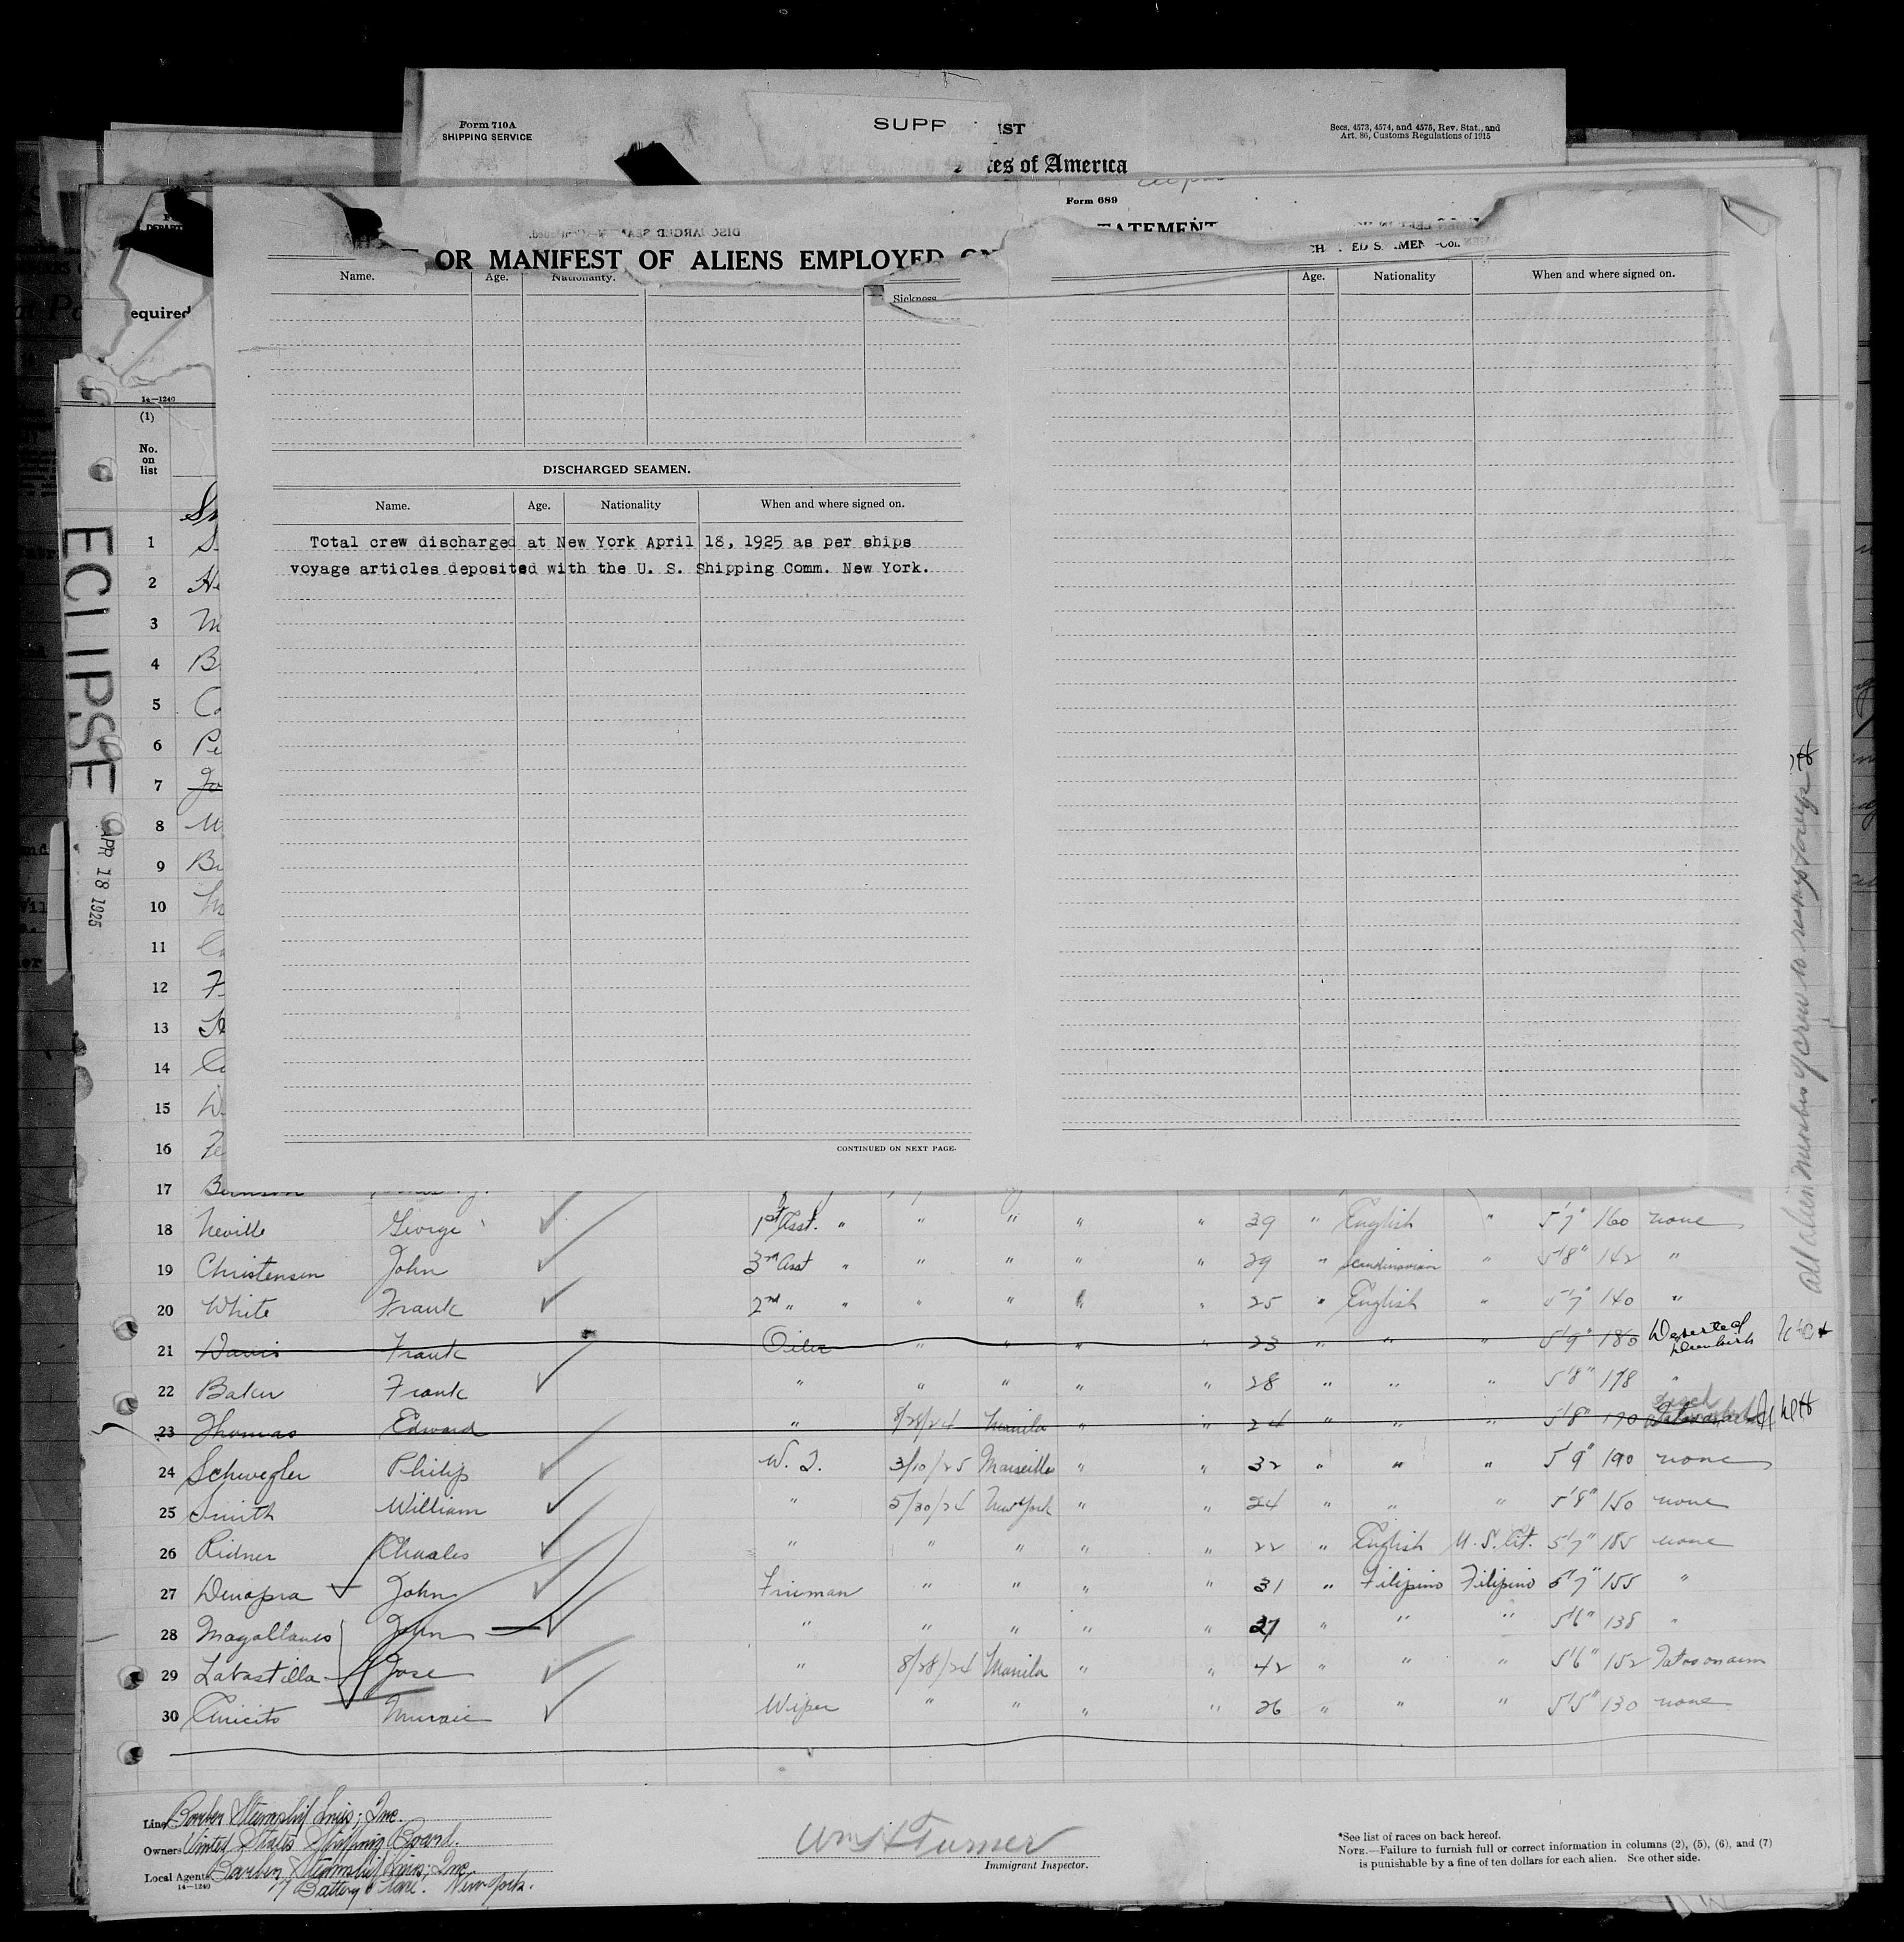 Form 710A
SHIPPING SERVICE
SUPP IST
Secs. 4573, 4574, and 4575, Rev. Stat., and
Art. 86, Customs Regulations of 1915
es of America
Form 689
OR MANIFEST OF ALIENS EMPLOYED
STATEMENT
Name. Age. Nationality.
Sickness
Age. Nationality When and where signed on.
equired
14—1240
(1)
No.
on
list
DISCHARGED SEAMEN.
Name. Age. Nationality When and where signed on.
Total crew discharged at New York April 18, 1925 as per ships
voyage articles deposited with the U. S. Shipping Comm. New York.
ECLIPSE
APR 18 1925
1
2
3
4
5
6
7
8
9
10
11
12
13
14
15
16
CONTINUED ON NEXT PAGE.
17
18 Neville George 1st Asst. " " " " " 39 " English " 5'7" 160 none
19 Christensen John 3rd Asst " " " " " 29 " Scandinavian " 5'8" 142 "
20 White Frank 2nd " " " " " " 25 " English " 5'7" 140 "
21 Davis Frank Oiler " " " " 23 " " " 5'9" 180 Deserted
22 Baker Frank " " " " " 28 " " " 5'8" 178 "
23 Thomas Edward " 8/28/24 Manila " " 24 " " " 5'8" 170
24 Schwegler Philip W. T. 3/10/25 Marseilles " " 32 " " " 5'9" 190 none
25 Smith William " 5/30/24 New York " " 24 " " " 5'8" 150 none
26 Ridner Charles " " " " 22 " English U.S. Cit. 5'7" 185 none
27 Denopra John Fireman " " " 31 " Filipino Filipino 5'7" 155 "
28 Magallanes John " " " " " 27 " " " 5'6" 138 "
29 Labastilla Jose " 8/28/24 Manila " " 42 " " " 5'6" 152 Tatoo on arm
30 Anicito Wiper " " " " 26 " " " 5'5" 130 none
All alien members of crew to
Line Barber Steamship Lines, Inc.
Owners United States Shipping Board.
Local Agents Barber Steamship Lines, Inc.
14—1240
17 Battery Place. New York.
Wm H Turner
Immigrant Inspector.
*See list of races on back hereof.
NOTE.—Failure to furnish full or correct information in columns (2), (5), (6), and (7)
is punishable by a fine of ten dollars for each alien. See other side.